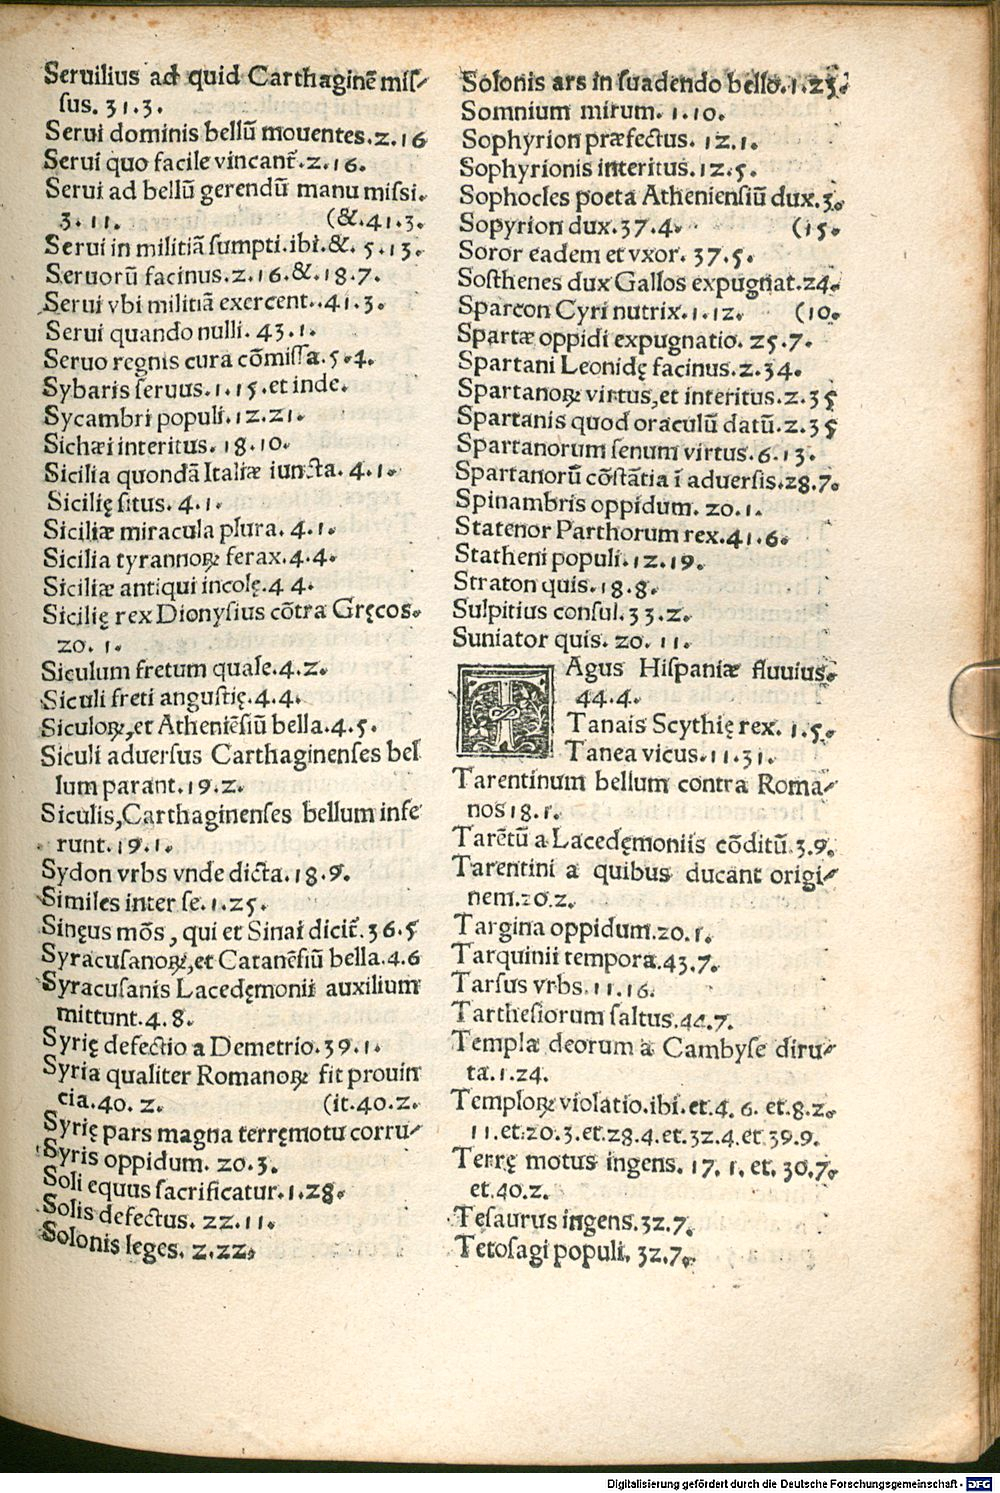 Seruilius ad quid Carthaginẽ miſ⸗
ſus. 31.3.
Serui dominis bellũ mouentes.2.16
Serui quo facile vincant̃.2.16.
Serui ad bellũ gerendũ manu miſſi.
3.11. (&.41.3.
Serui in militiã ſumpti.ibi.&. 5.13.
Seruorũ facinus.2.16.&.18.7.
Serui vbi militiã exercent..41.3.
Serui quando nulli. 43.1.
Seruo regnis cura cõmiſſa.5.4.
Sybaris ſeruus.1.15.et inde.
Sycambri populi.12.21.
Sichæi interitus. 18.10.
Sicilia quondã Italiæ iuncta. 4.1.
Sicilię ſitus. 4.1.
Siciliæ miracula plura. 4.1.
Sicilia tyrannoꝝ ferax.4.4.
Siciliæ antiqui incolę.4 4.
Sicilię rex Dionyſius cõtra Gręcos.
20. 1.
Siculum fretum quale.4.2.
Siculi freti anguſtię.4.4.
Siculoꝝ,et Atheniẽſiũ bella.4.5.
Siculi aduerſus Carthaginenſes bel
lum parant.19.2.
Siculis,Carthaginenſes bellum infe
runt.19.1.
Sydon vrbs vnde dicta.18.9.
Similes inter ſe.1.25.
Sinęus mõs, qui et Sinai dicit̃.36.5
Syracuſanoꝝ,et Catanẽſiũ bella.4.6
Syracuſanis Lacedęmonii auxilium
mittunt.4.8.
Syrię defectio a Demetrio.39.1.
Syria qualiter Romanoꝝ fit prouin
cia.40. 2. (it.40.2.
Syrię pars magna terręmotu corru⸗
Syris oppidum. 20.3.
Soli equus ſacrificatur.1.28.
Solis defectus. 22.11.
Solonis leges. 2.22.
Solonis ars in ſuadendo bello.1.23.
Somnium mirum. 1.10.
Sophyrion præfectus. 12.1.
Sophyrionis interitus.12.5.
Sophocles poeta Athenienſiũ dux.3.
Sopyrion dux.37.4. (15.
Soror eadem et vxor. 37.5.
Soſthenes dux Gallos expugnat.24.
Sparcon Cyri nutrix.1.12. (10.
Spartæ oppidi expugnatio. 25.7.
Spartani Leonidę facinus.2.34.
Spartanoꝝ virtus,et interitus.2.35
Spartanis quod oraculũ datũ.2.35
Spartanorum ſenum virtus.6.13.
Spartanorũ cõſtãtia ĩ aduerſis.28.7.
Spinambris oppidum. 20.1.
Statenor Parthorum rex.41.6.
Statheni populi.12.19.
Straton quis.18.8.
Sulpitius conſul.33.2.
Suniator quis. 20. 11.
TAgus Hiſpaniæ fluuius.
44.4.
Tanais Scythię rex. 1.5.
Tanea vicus.11.31.
Tarentinum bellum contra Roma⸗
nos18.1.
Tarẽtũ a Lacedęmoniis cõditũ.3.9.
Tarentini a quibus ducant origi⸗
nem.20.2.
Targina oppidum.20.1.
Tarquinii tempora.43.7.
Tarſus vrbs.11.16.
Tartheſiorum ſaltus.44.7.
Templa deorum a Cambyſe diru⸗
ta.1.24.
Temploꝝ violatio.ibi.et.4. 6. et.8.2.
11.et.20.3.et.28.4.et.32.4.et.39.9.
Terrę motus ingens. 17. 1. et. 30.7.
et.40.2.
Teſaurus ingens.32.7.
Tetoſagi populi. 32.7.
Digitalisierung gefördert durch die Deutsche Forschungsgemeinschaft - DFG